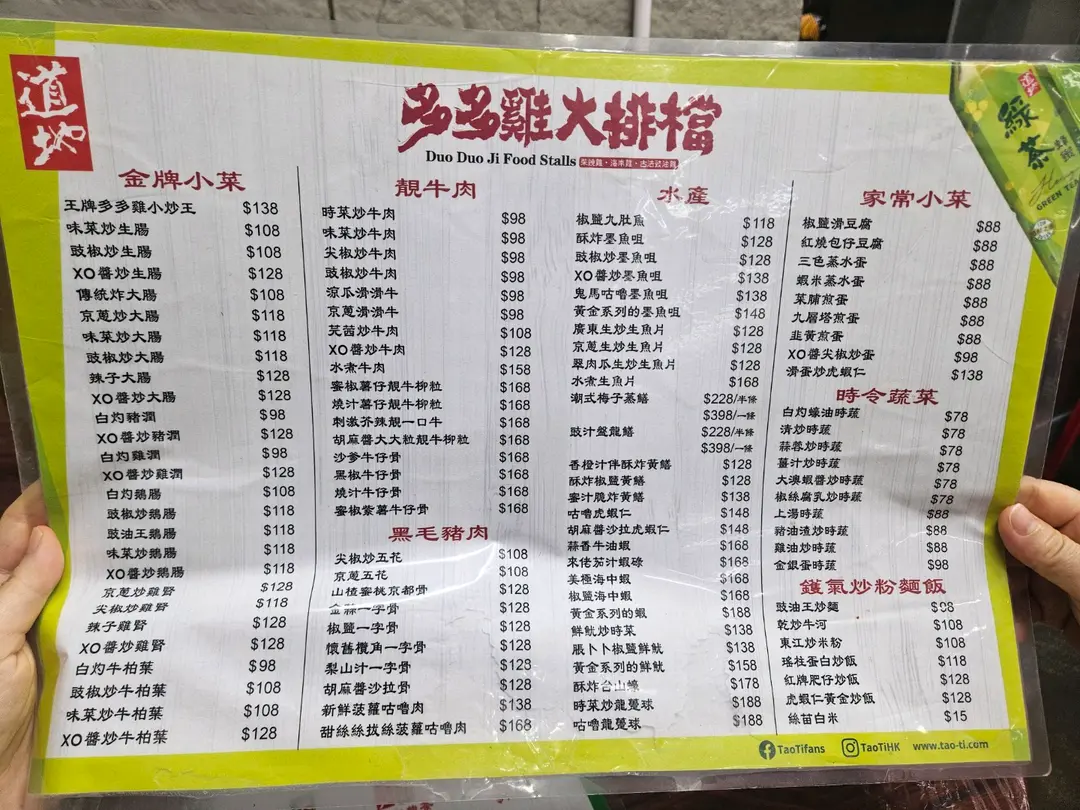 道地
多多雞大排檔
Duo Duo Ji Food Stalls
綠茶
蜂蜜
GREEN TEA
金牌小菜
王牌多多雞小炒王 $138
味菜炒生腸 $108
豉椒炒生腸 $108
XO醬炒生腸 $128
傳統炸大腸 $108
京蔥炒大腸 $118
味菜炒大腸 $118
豉椒炒大腸 $118
辣子大腸 $128
XO醬炒大腸 $128
白灼豬潤 $98
XO醬炒豬潤 $128
白灼雞潤 $98
XO醬炒雞潤 $128
白灼鵝腸 $108
豉椒炒鵝腸 $118
豉油王鵝腸 $118
味菜炒鵝腸 $118
XO醬炒鵝腸 $118
京蔥炒雞腎 $128
尖椒炒雞腎 $118
辣子雞腎 $128
XO醬炒雞腎 $128
白灼牛柏葉 $98
豉椒炒牛柏葉 $108
味菜炒牛柏葉 $108
XO醬炒牛柏葉 $128
靚牛肉
時菜炒牛肉 $98
味菜炒牛肉 $98
尖椒炒牛肉 $98
豉椒炒牛肉 $98
涼瓜滑滑牛 $98
京蔥滑滑牛 $98
芫茜炒牛肉 $108
XO醬炒牛肉 $128
水煮牛肉 $158
蜜椒薯仔靚牛柳粒 $168
燒汁薯仔靚牛柳粒 $168
刺激芥辣靚一口牛 $168
胡麻醬大大粒靚牛柳粒 $168
沙爹牛仔骨 $168
黑椒牛仔骨 $168
燒汁牛仔骨 $168
蜜椒紫薯牛仔骨 $168
黑毛豬肉
尖椒炒五花 $108
京蔥五花 $108
山楂蜜桃京都骨 $128
金蒜一字骨 $128
椒鹽一字骨 $128
懷舊欖角一字骨 $128
梨山汁一字骨 $128
胡麻醬沙拉骨 $128
新鮮菠蘿咕嚕肉 $138
甜絲絲拔絲菠蘿咕嚕肉 $168
水產
椒鹽九肚魚 $118
酥炸墨魚咀 $128
豉椒炒墨魚咀 $128
XO醬炒墨魚咀 $138
鬼馬咕嚕墨魚咀 $138
黃金系列的墨魚咀 $148
廣東生炒生魚片 $128
京蔥生炒生魚片 $128
翠肉瓜生炒生魚片 $128
水煮生魚片 $168
潮式梅子蒸鱔 $228/半條
$398/一條
豉汁盤龍鱔 $228/半條
$398/一條
香橙汁伴酥炸黃鱔 $128
酥炸椒鹽黃鱔 $128
蜜汁脆炸黃鱔 $138
咕嚕虎蝦仁 $148
胡麻醬沙拉虎蝦仁 $148
蒜香牛油蝦 $168
來佬茄汁蝦碌 $168
美極海中蝦 $168
椒鹽海中蝦 $168
黃金系列的蝦 $188
鮮魷炒時菜 $138
脹卜卜椒鹽鮮魷 $138
黃金系列的鮮魷 $158
酥炸台山蠔 $178
時菜炒龍躉球 $188
咕嚕龍躉球 $188
家常小菜
椒鹽滑豆腐 $88
紅燒包仔豆腐 $88
三色蒸水蛋 $88
蝦米蒸水蛋 $88
菜脯煎蛋 $88
九層塔煎蛋 $88
韭黃煎蛋 $88
XO醬尖椒炒蛋 $98
滑蛋炒虎蝦仁 $138
時令蔬菜
白灼蠔油時蔬 $78
清炒時蔬 $78
蒜蓉炒時蔬 $78
薑汁炒時蔬 $78
大澳蝦醬炒時蔬 $78
椒絲腐乳炒時蔬 $78
上湯時蔬 $88
豬油渣炒時蔬 $88
雞油炒時蔬 $88
金銀蛋時蔬 $98
鑊氣炒粉麵飯
豉油王炒麵 $98
乾炒牛河 $108
東江炒米粉 $108
瑤柱蛋白炒飯 $118
紅牌肥仔炒飯 $128
虎蝦仁黃金炒飯 $128
絲苗白米 $15
TaoTifans TaoTiHK www.tao-ti.com